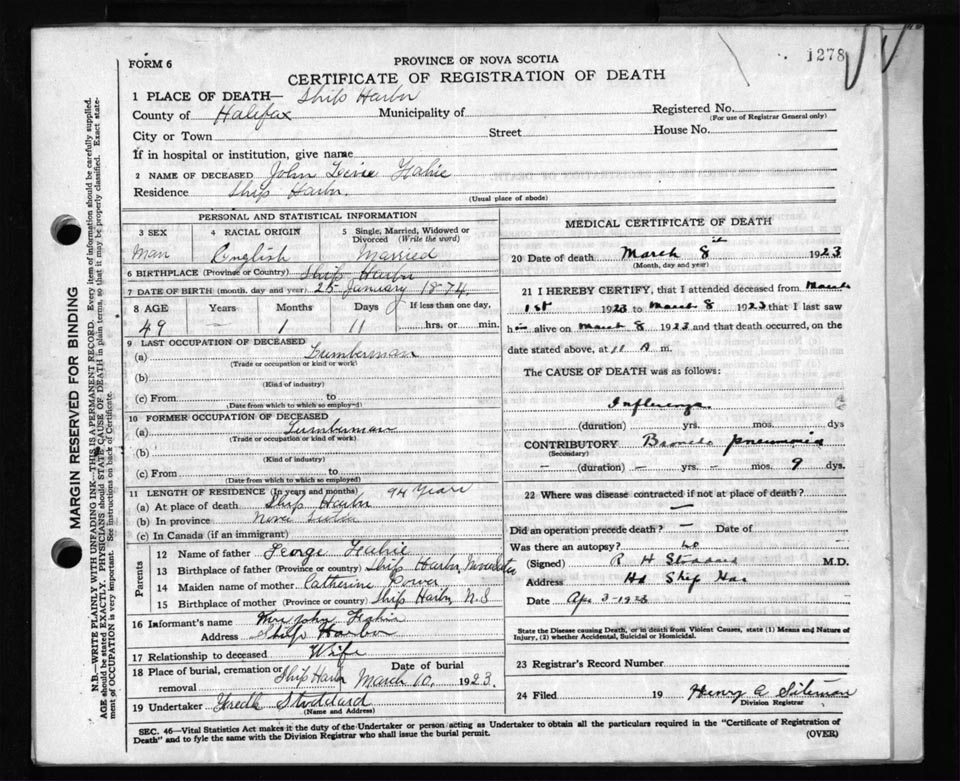 1278
FORM 6
PROVINCE OF NOVA SCOTIA
CERTIFICATE OF REGISTRATION OF DEATH
1 PLACE OF DEATH— Ship Harbor
County of Halifax Municipality of Registered No.
(For use of Registrar General only)
City or Town Street House No.
If in hospital or institution, give name
2 NAME OF DECEASED John
Residence Ship Harbor.
(Usual place of abode)
PERSONAL AND STATISTICAL INFORMATION
3 SEX 4 RACIAL ORIGIN 5 Single, Married, Widowed or Divorced (Write the word)
Man English Married
6 BIRTHPLACE (Province or Country) Ship Harbor
7 DATE OF BIRTH (month, day and year) 25 January 1874
8 AGE Years Months Days If less than one day,
49 — 1 11 hrs. or min.
9 LAST OCCUPATION OF DECEASED
(a) Lumberman
(Trade or occupation or kind of work)
(b)
(Kind of industry)
(c) From to
(Date from which to which so employed)
10 FORMER OCCUPATION OF DECEASED
(a) Lumberman
(Trade or occupation or kind of work)
(b)
(Kind of industry)
(c) From to
(Date from which to which so employed)
11 LENGTH OF RESIDENCE (In years and months) Years
(a) At place of death Ship Harbor
(b) In province Nova Scotia
(c) In Canada (if an immigrant)
Parents
12 Name of father George
13 Birthplace of father (Province or country) Ship Harbor, Nova Scotia
14 Maiden name of mother Catherine Power
15 Birthplace of mother (Province or country) Ship Harbor N.S
16 Informant's name Mrs John
Address Ship Harbor
17 Relationship to deceased Wife
18 Place of burial, cremation or removal Ship Harbor Date of burial March 10, 1923.
19 Undertaker Stoddard
(Name and Address)
MEDICAL CERTIFICATE OF DEATH
20 Date of death March 8th 1923
(Month, day and year)
21 I HEREBY CERTIFY, that I attended deceased from March
1st 1923 to March 8 1923 that I last saw
him alive on March 8 1923 and that death occurred, on the
date stated above, at 11 A m.
The CAUSE OF DEATH was as follows:
Influenza
(duration) yrs. mos. dys
CONTRIBUTORY Broncho pneumonia
(Secondary)
— (duration) — yrs. — mos. 9 dys.
22 Where was disease contracted if not at place of death?
—
Did an operation precede death? — Date of
Was there an autopsy? no
(Signed) R H M.D.
Address Hd Ship Har
Date Apr 3-1923
State the Disease causing Death, or in death from Violent Causes, state (1) Means and Nature of
Injury, (2) whether Accidental, Suicidal or Homicidal.
23 Registrar's Record Number
24 Filed 19 Henry A
Division Registrar
SEC. 46—Vital Statistics Act makes it the duty of the Undertaker or person acting as Undertaker to obtain all the particulars required in the "Certificate of Registration of
Death" and to fyle the same with the Division Registrar who shall issue the burial permit.
(OVER)
MARGIN RESERVED FOR BINDING
N.B.—WRITE PLAINLY WITH UNFADING INK—THIS IS A PERMANENT RECORD. Every item of information should be carefully supplied.
AGE should be stated EXACTLY. PHYSICIANS should STATE CAUSE OF DEATH in plain terms, so that it may be properly classified. Exact statement
of OCCUPATION is very important. See instructions on back of Certificate.